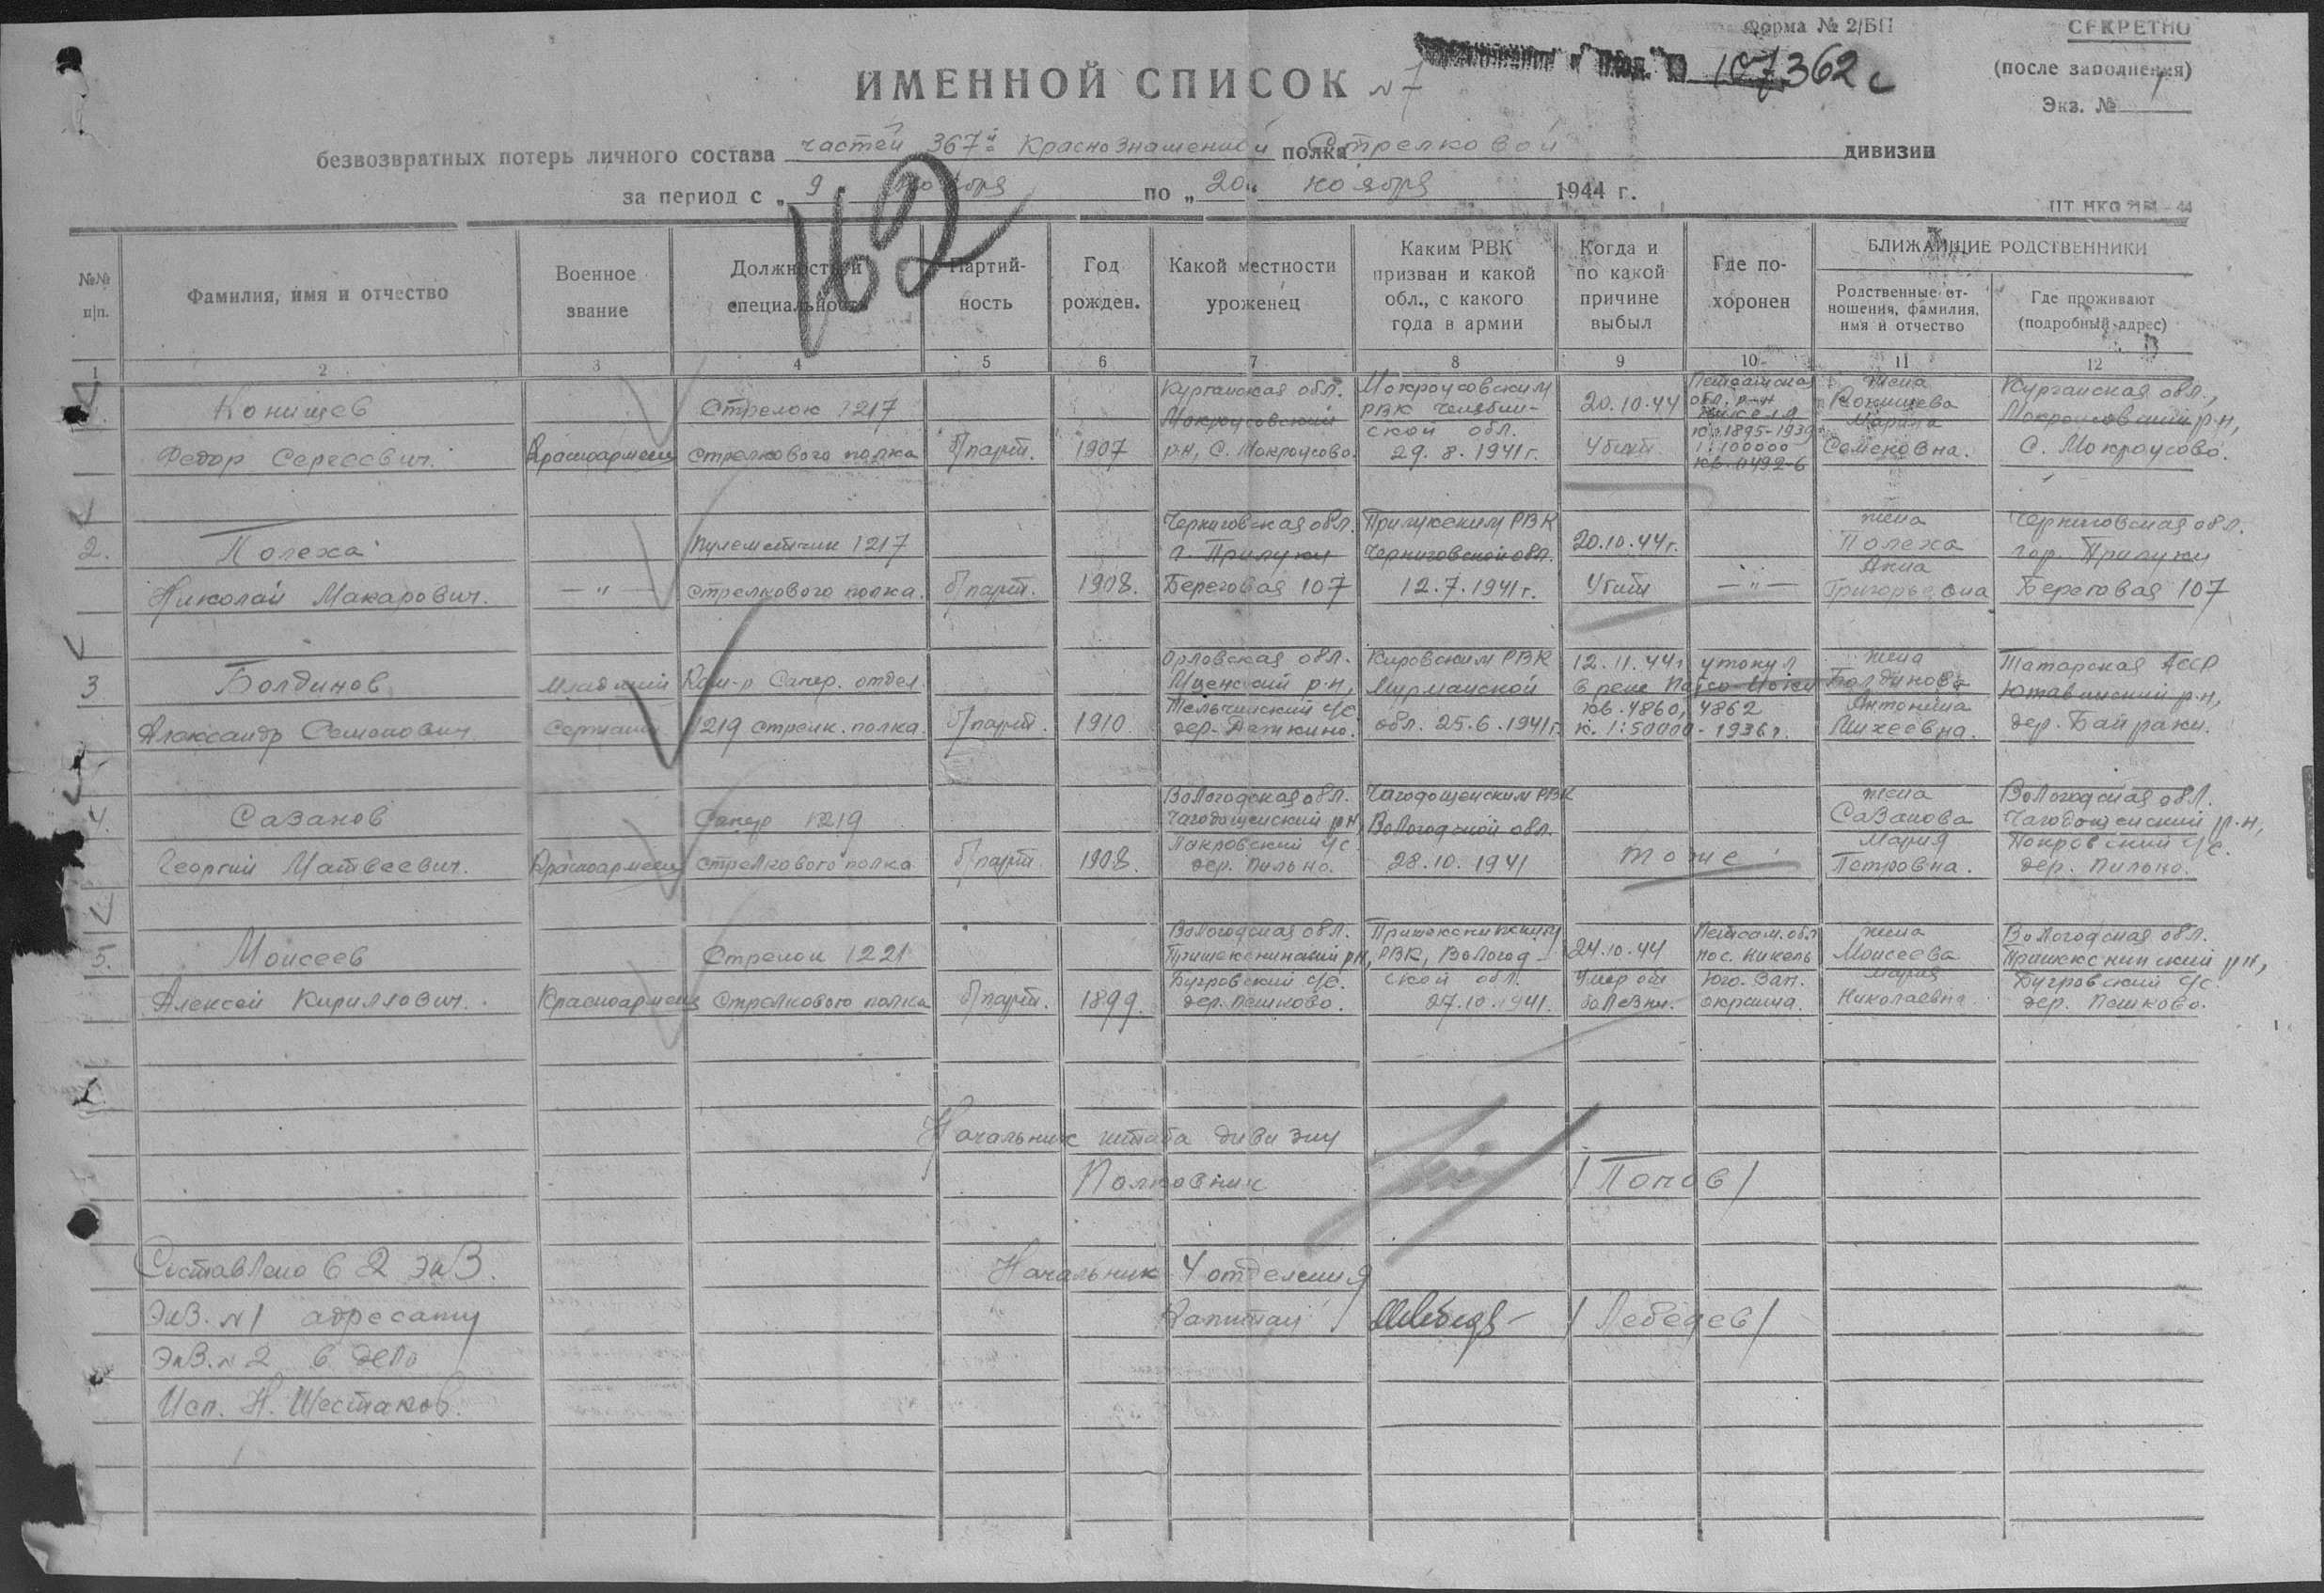 Форма № 2/БП
СЕКРЕТНО
(после заполнения)
Экз. № 1
107362с
ИМЕННОЙ СПИСОК №7
безвозвратных потерь личного состава частей 367й Краснознаменной полка Стрелковой дивизии
за период с „9 ноября по „20“ ноября 1944 г.
162
№№ п|п.
Фамилия, имя и отчество
Военное звание
Должность и специальность
Партийность
Год рожден.
Какой местности уроженец
Каким РВК призван и какой обл., с какого года в армии
Когда и по какой причине выбыл
Где похоронен
БЛИЖАЙШИЕ РОДСТВЕННИКИ
Родственные отношения, фамилия, имя и отчество
Где проживают (подробный адрес)
1 2 3 4 5 6 7 8 9 10 11 12
Конищев
Федор Сергеевич.
Красноармеец
Стрелок 1217
стрелкового полка
б/парт.
1907
Курганская обл.
Мокроусовский
р-н, С. Мокроусово
Мокроусовским
РВК Челябин-
ской обл.
29.8.1941г.
20.10.44
Убит
обл. р-н
Никеля
к. 1895-1939
1:100000
кв. 0492-б
жена
Конищева
Марина
Семеновна.
Курганская обл.,
Мокроусовский р-н,
С. Мокроусово.
2.
Полеха
Николай Макарович.
— " —
Пулеметчик 1217
стрелкового полка.
б/парт.
1908.
Черниговская обл.
г. Прилуки
Береговая 107
Прилукским РВК
Черниговской обл.
12.7.1941г.
20.10.44г.
Убит
— " —
жена
Полеха
Анна
Григорьевна
Черниговская обл.
гор. Прилуки
Береговая 107
3
Болдинов
Александр Семенович
Младший
Сержант
Ком-р Сапер. отдел.
1219 стрелк. полка
б/парт.
1910
Орловская обл.
Мценский р-н,
Тельчинский с/с
дер. Дежкино.
Кировским РВК
Мурманской
обл. 25.6.1941г.
12.11.44г утонул
в реке Патсо-Иоки
кв. 4860, 4862
к. 1:50000 - 1936г.
жена
Болдинова
Антонина
Михеевна.
Татарская АССР
Ютазинский р-н,
дер. Байраки.
4.
Сазанов
Георгий Матвеевич.
Красноармеец
Сапер 1219
стрелкового полка
б/парт.
1908.
Вологодская обл.
Чагодощенский р-н,
Покровский с/с
дер. Пильно.
Чагодощенским РВК
Вологодской обл.
28.10.1941
тоже
жена
Сазанова
Мария
Петровна.
Вологодская обл.
Чагодощенский р-н,
Покровский с/с.
дер. Пильно.
5.
Моисеев
Алексей Кириллович.
Красноармеец
Стрелок 1221
Стрелкового полка
б/парт.
1899.
Вологодская обл.
Пришекснинский р-н,
Бугровский с/с.
дер. Пешково.
Пришекснинским
РВК, Вологод-
ской обл.
27.10.1941.
24.10.44
Умер от
болезни.
Петсам. обл
пос. Никель
Юго. Зап.
окраина.
жена
Моисеева
Мария
Николаевна.
Вологодская обл.
Пришекснинский р-н,
Бугровский с/с.
дер. Пешково.
Начальник штаба дивизии
Полковник /Попов/
Составлено в 2 экз.
Начальник 4 отделения
Экз. №1 адресату
Капитан /Лебедев/
Экз. №2 в дело
Исп. Н. Шестаков.